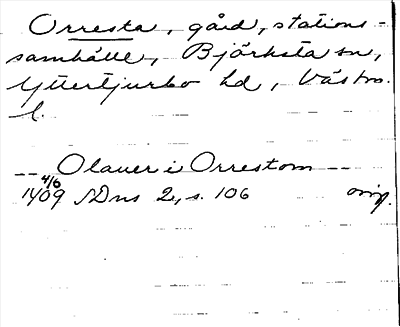 Orresta, gård, stations-
samhälle, Björksta sn,
Yttertjurbo hd, Västm.
l.
-- Olauer i Orrestom --
1409 4/6 SDns 2, s. 106 orig.